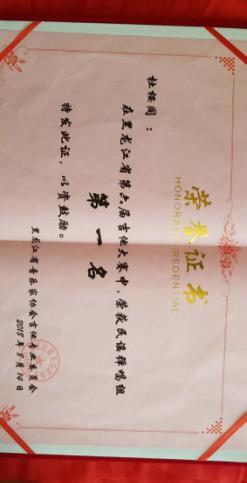 荣誉证书
HONORARY CREDENTIAL
在黑龙江省第六届吉他大赛中,荣获民谣弹唱组
第一名
特发此证,以资鼓励。
黑龙江省音乐家协会吉他专业委员会
2018年8月14日